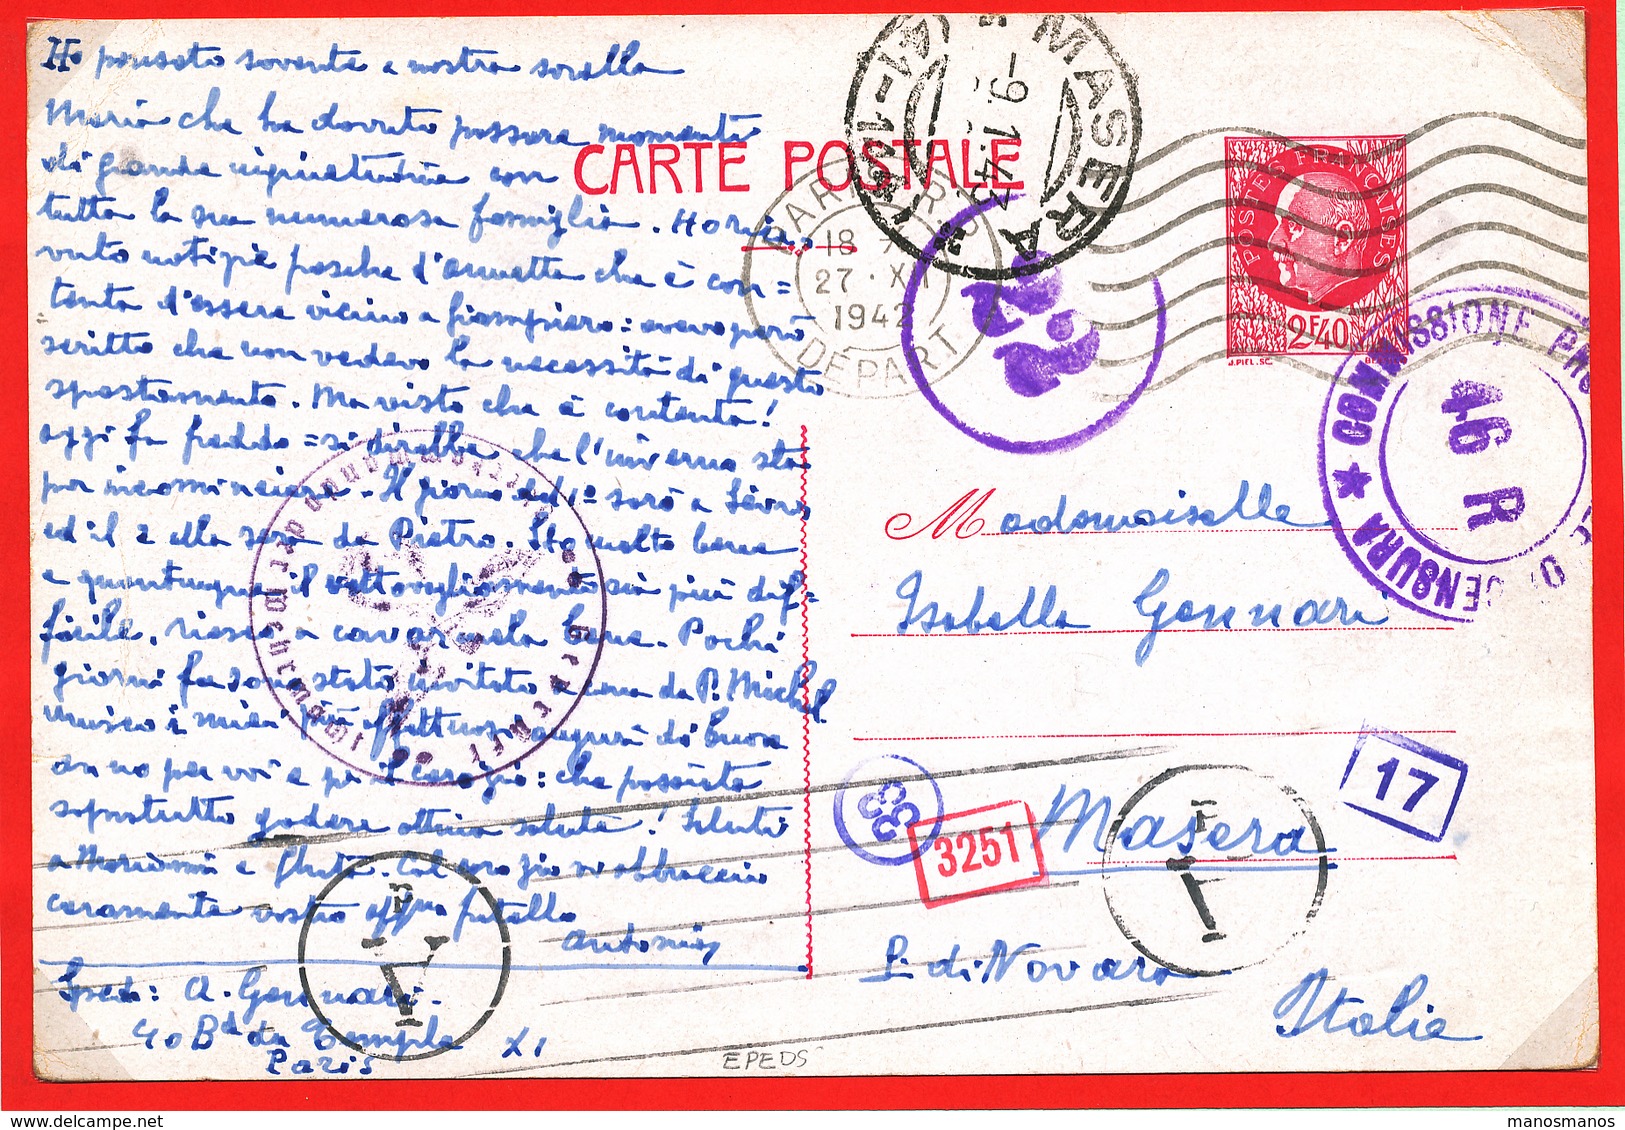 Ho pensato sovente a nostra sorella
Maria che ha dovuto passare momenti
di grande inquietudine con
tutta la sua numerosa famiglia. Ho rice=
vuto notizie fresche d'annetta che è con=
tenta d'essere vicino a Giampiero: avevo però
scritto che non vedevo la necessità di questo
spostamento. Ma visto che è contenta!
oggi fa freddo = si direbbe che l'inverno sta
per incominciare. Il giorno del 1º sarò a Sèvres
ed il 2 alla sera da Pietro. Sto molto bene
e quantunque il vettovagliamento sia più dif=
ficile, riesco a cavarmela bene. Pochi
giorni fa sono stato invitato a cena da P. Michel.
i miei più affettuosi auguri di buon
anno per voi e per il : che possiate
soprattutto godere ottima salute! Saluti
a Mariannì e . Col v'abbraccio
caramente vostro aff.mo fratello
Antonio
Sped: A. Gennari.
40 Bd du Temple XI
Paris
EPEDS
CARTE POSTALE
PARIS
18
27 · XI
1942
DÉPART
MASERA
-9.1.4
POSTES FRANÇAISES
2F40
J.PIEL.SC.
COMMISSIONE CENSURA
46 R
Oberkommando der Wehrmacht
Mademoiselle
Isabella Gennari
33
3251
17
Masera
P. di Novara
Italie
manosmanos